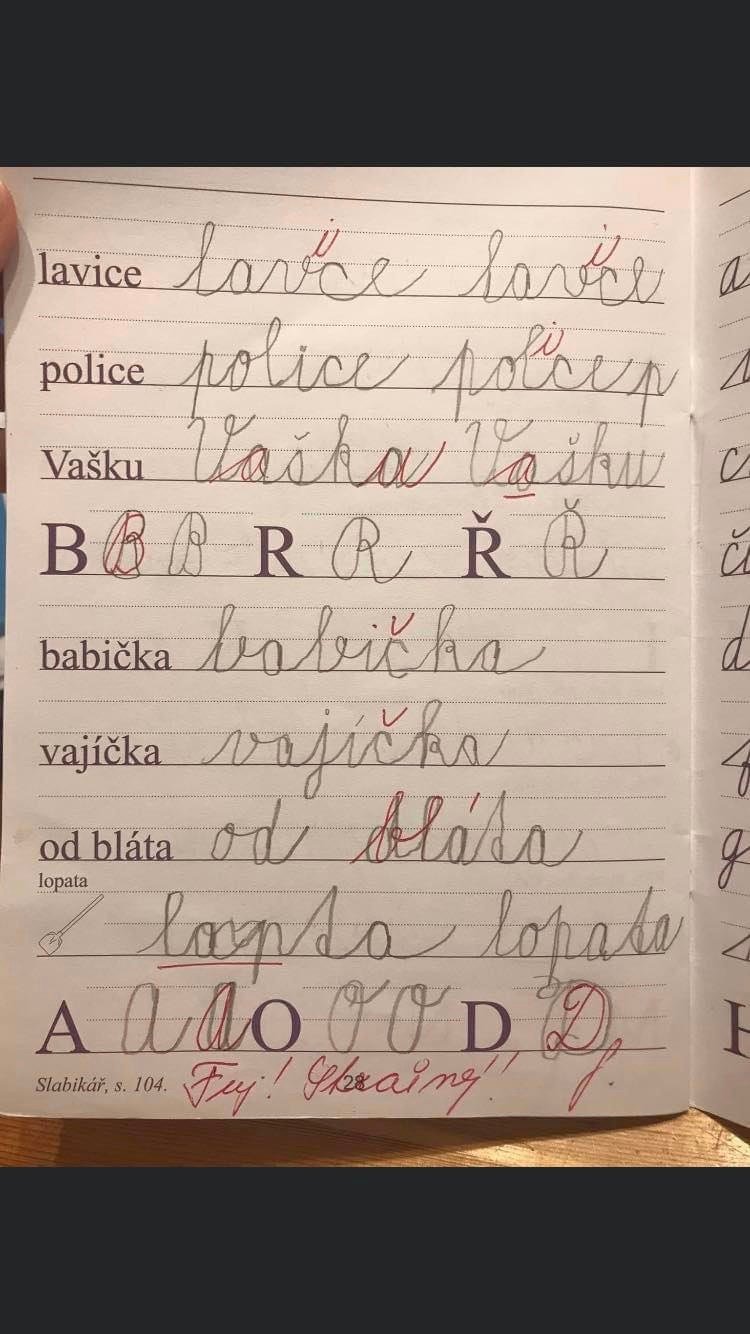 lavice lavice lavice
police police policep
Vašku Vaška Vašku
B B B R R Ř Ř
babička babička
vajíčka vajíčka
od bláta od bláta
lopata
lopata
A A A O O O D D
Slabikář, s. 104. Fuj! 28 Strašné!!